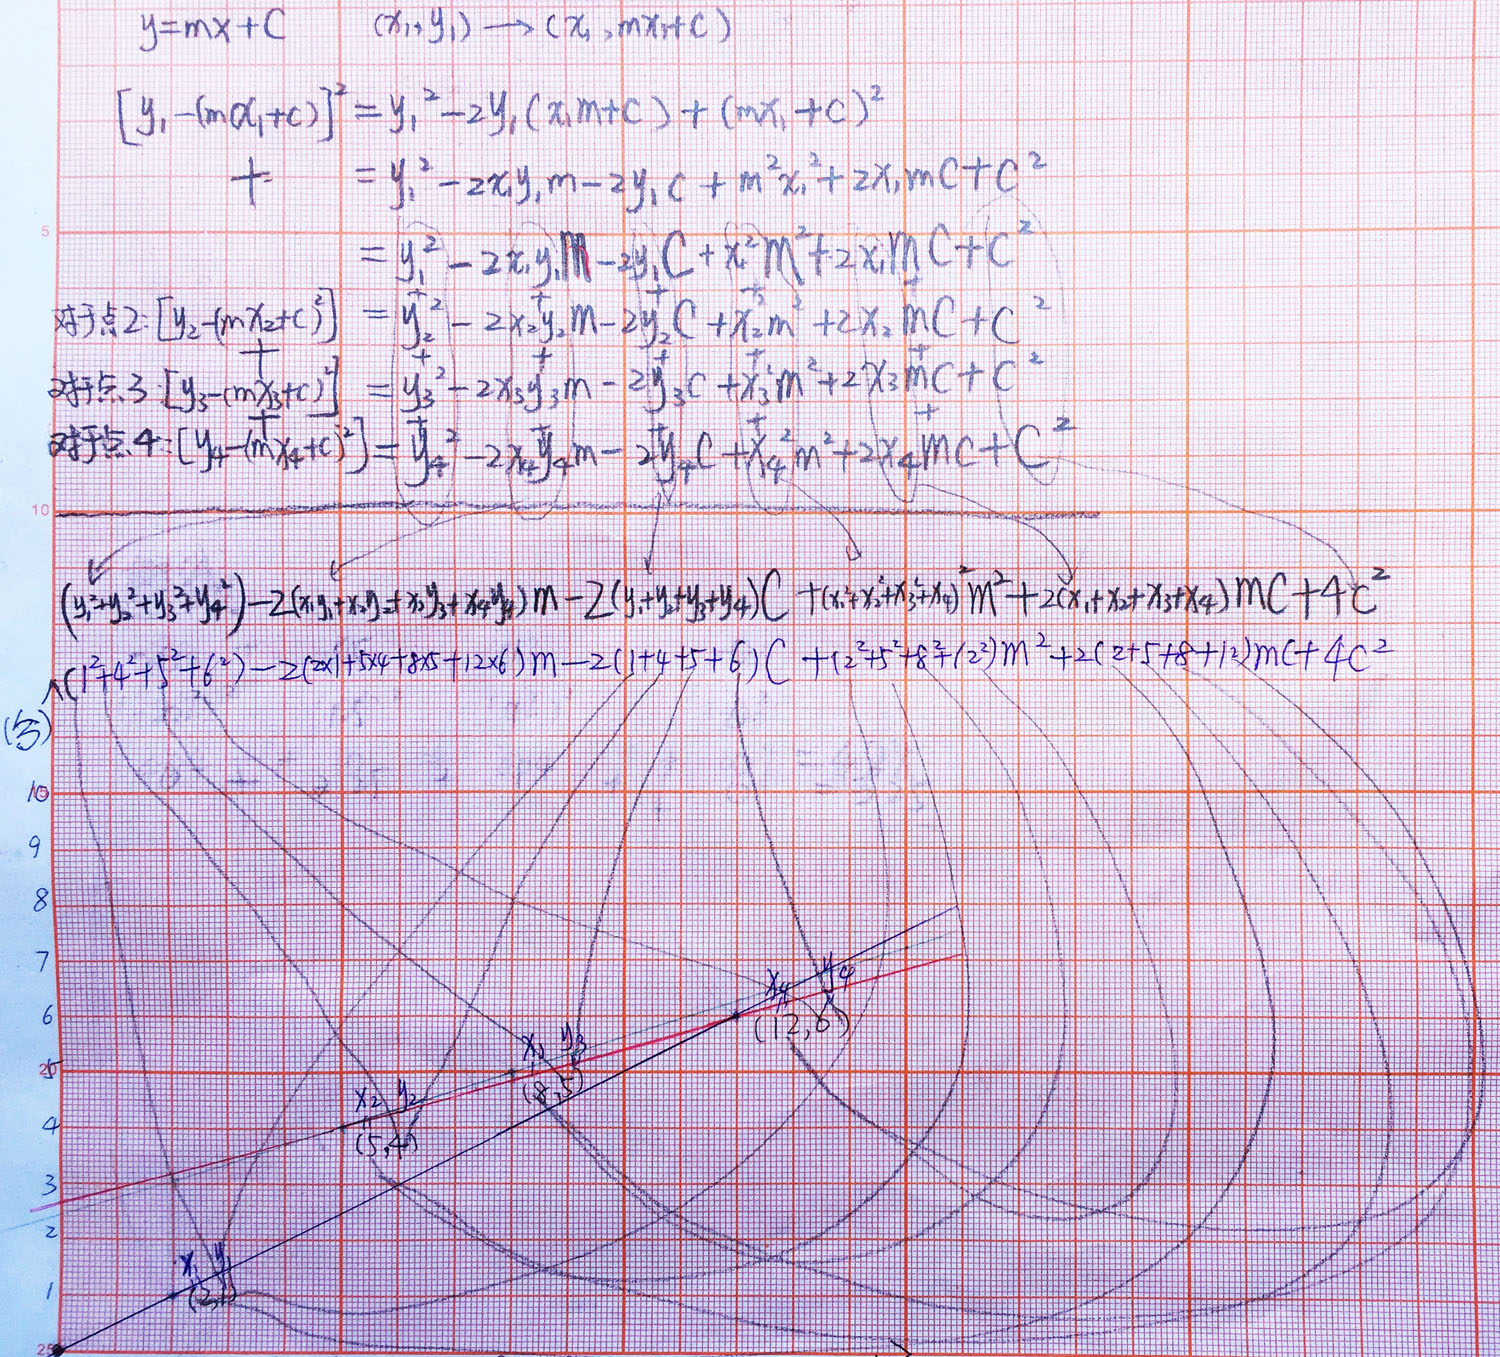 y=mx+C (x₁,y₁)→(x₁,mx₁+C)
[y₁-(mx₁+c)]²=y₁²-2y₁(x₁m+c)+(mx₁+c)²
+ =y₁²-2x₁y₁m-2y₁c+m²x₁²+2x₁mC+C²
5 =y₁²-2x₁y₁m-2y₁C+x₁²m²+2x₁mC+C²
+ + + + +
对于点2:[y₂-(mx₂+c)²]=y₂²-2x₂y₂m-2y₂C+x₂²m²+2x₂mC+C²
+ + + + + +
对于点3:[y₃-(mx₃+c)²]=y₃²-2x₃y₃m-2y₃c+x₃²m²+2x₃mC+C²
+ + + + + +
对于点4:[y₄-(mx₄+c)²]=y₄²-2x₄y₄m-2y₄C+x₄²m²+2x₄mc+C²
10
(y₁²+y₂²+y₃²+y₄²)-2(x₁y₁+x₂y₂+x₃y₃+x₄y₄)m-2(y₁+y₂+y₃+y₄)C+(x₁²+x₂²+x₃²+x₄)²m²+2(x₁+x₂+x₃+x₄)mC+4c²
(1²+4²+5²+6²)-2(2x1+5x4+8x5+12x6)m-2(1+4+5+6)C+(2²+5²+8²+12²)m²+2(2+5+8+12)mc+4c²
10
9
8
7
x₄ y₄
6 (12,6)
x₃ y₃
5 20
(8,5)
x₂ y₂
4
(5,4)
3
2
x₁ y₁
1 (2,1)
25